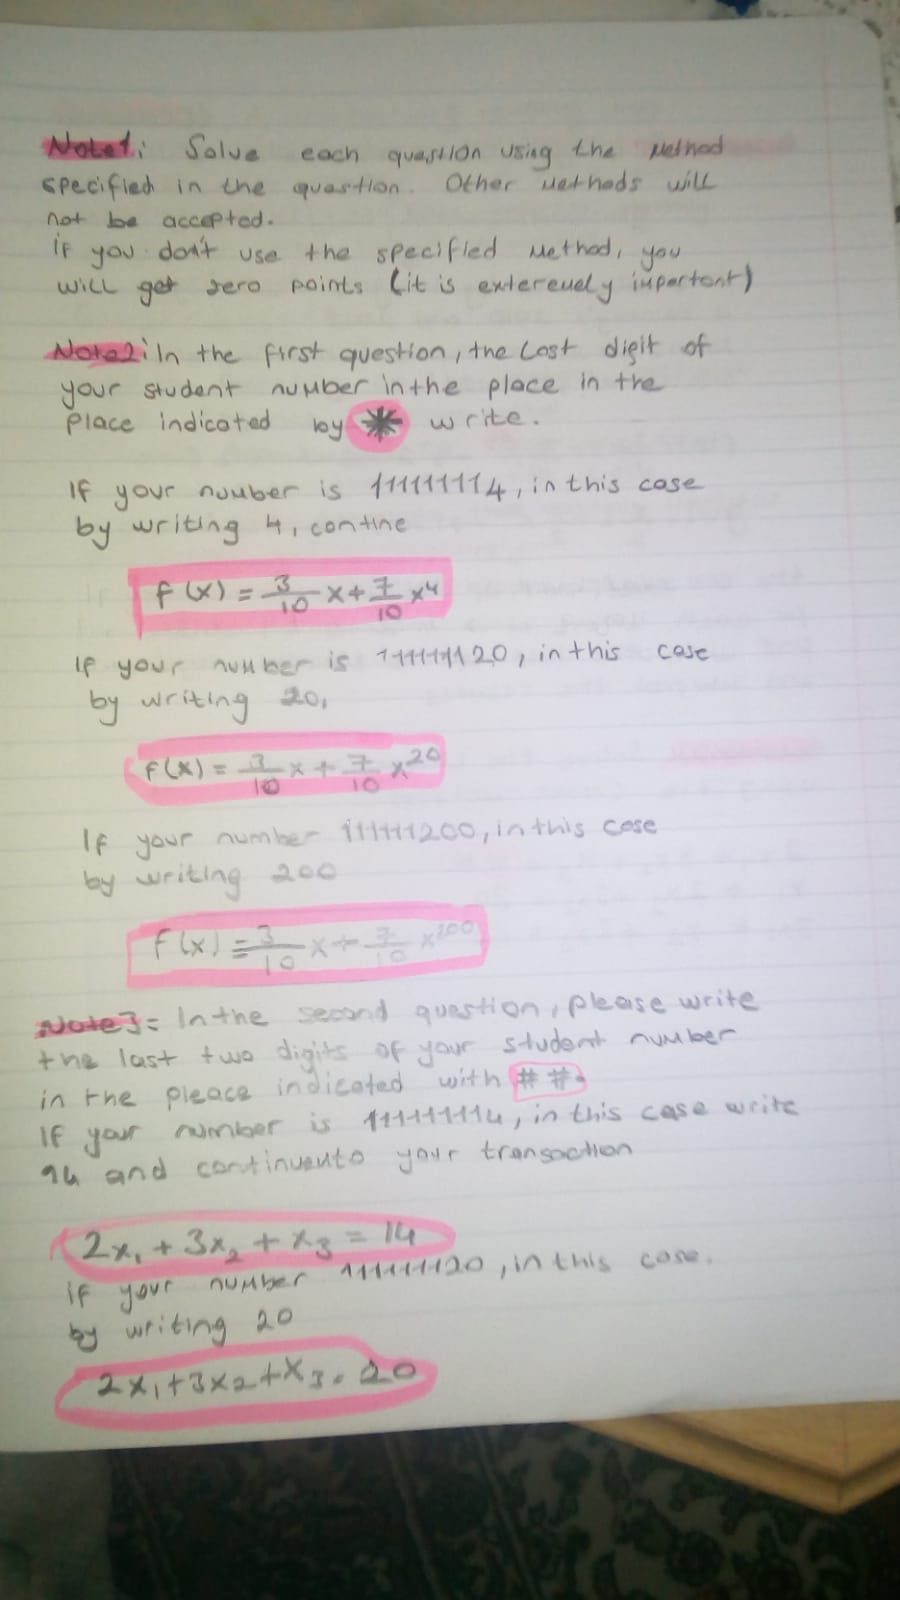 Note1: Solve each question using the Method
specified in the question. Other Methods will
not be accepted.
if you don't use the specified Method, you
will get zero points (it is extereuely important)
Note2: In the first question, the Last digit of
your student number in the place in the
place indicated by * write.
If your number is 111111114, in this case
by writing 4, contine
f(x) = 3/10 x + 7/10 x^4
If your number is 111111120, in this case
by writing 20,
f(x) = 3/10 x + 7/10 x^20
If your number 111111200, in this case
by writing 200
f(x) = 3/10 x + 7/10 x^200
Note3= In the second question, please write
the last two digits of your student number
in the pleace indicated with ##.
If your number is 111111114, in this case write
14 and continue to your transaction
2x₁ + 3x₂ + x₃ = 14
if your number 111111120, in this case.
by writing 20
2x₁+3x₂+x₃=20